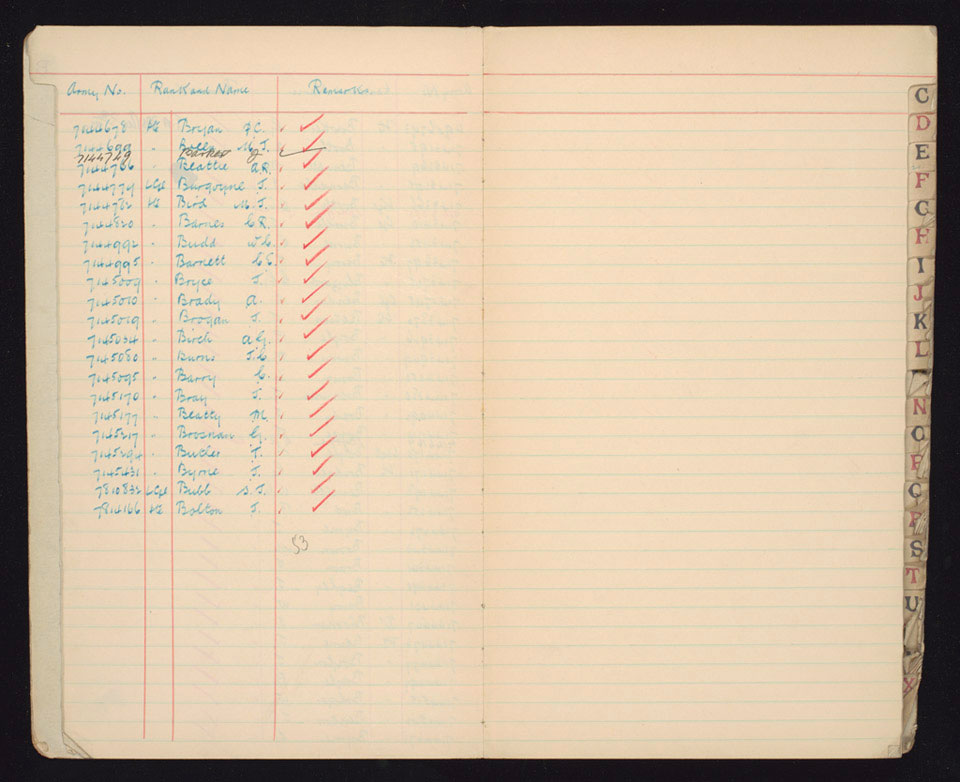 Army No. Rank and Name Remarks.
7144678 Pte Bryan J.C.
7144699 " M.J.
7144749 Barnes J
7144766 " Beattie A.R.
7144774 L Cpl Burgoyne J.
7144782 Pte Bird M.J.
7144820 " Barnes C.R.
7144992 " Budd W.C.
7144995 " Barnett C.E.
7145009 " Bryce J.
7145010 " Brady A.
7145019 " Brogan J.
7145034 " Birch A.G.
7145080 " Burns J.C.
7145095 " Barry C.
7145170 " Bray J.
7145177 " Beatty M.
7145317 " Brosnan G.
7145394 " Butler T.
7145431 " Byrne J.
7810832 L Cpl Bubb S.J.
7814166 Pte Bolton J.
53
C
D
E
F
G
H
I
J
K
L
N
O
P
Q
R
S
T
U